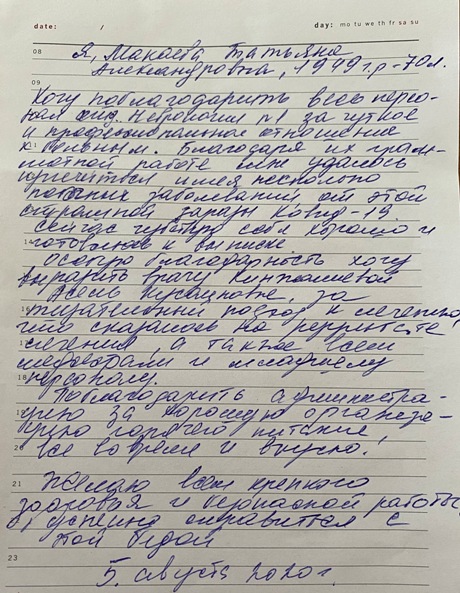 date: / day: mo tu we th fr sa su
08 Я, Макаева Татьяна
Александровна, 1949 г.р - 70 л.
09
Хочу поблагодарить весь персо-
нал отд. Неврологии №1 за чуткое
и профессиональное отношение
11 к больным. Благодаря их грам-
мотной работе мне удалось
излечиться имея несколько
заболеваний от этой
заразы Ковид-19.
Сейчас чувствую себя хорошо и
14 готовлюсь к выписке.
Особую благодарность хочу
выразить врачу
Асель за
16 тщательный подход к лечению,
что сказалось на результате
17 лечения, а также всем
медсёстрам и младшему
18 персоналу.
Поблагодарить администра-
19 цию за хорошую организа-
цию горячего питание,
20 все вовремя и вкусно.
21 Желаю всем крепкого
здоровья и безопасной работы,
успешно справится с
этой бедой
23
5. августа 2020 г.